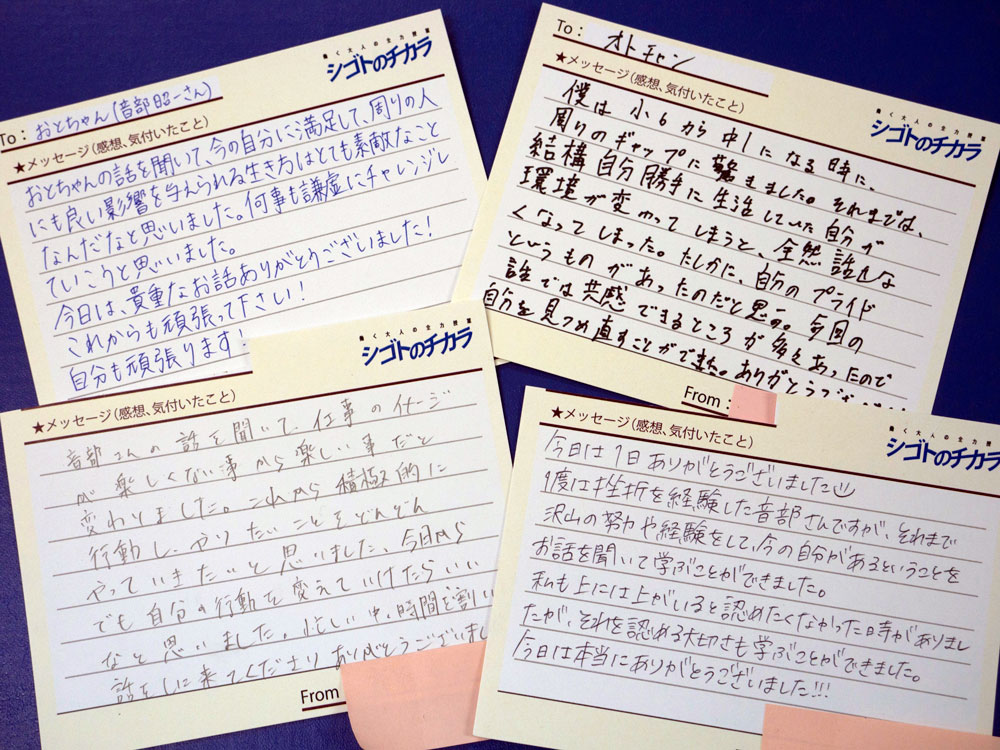 働く大人の全力授業
シゴトのチカラ
To: おとちゃん(音部昭一さん)
★メッセージ(感想、気付いたこと)
おとちゃんの話を聞いて、今の自分に満足して、周りの人
にも良い影響を与えられる生き方はとても素敵なこと
なんだなと思いました。何事も謙虚にチャレンジし
ていこうと思いました。
今日は、貴重なお話ありがとうございました!
これからも頑張って下さい!
自分も頑張ります!
To: オトチャン
働く大人の全力授業
シゴトのチカラ
★メッセージ(感想、気付いたこと)
僕は小6から中1になる時に、
周りのギャップに驚きました。それまでは、
結構自分勝手に生活していた自分が
環境が変わってしまうと、全然話せな
くなってしまった。たしかに、自分のプライド
というものがあったのだと思う。今回の
誰では共感できるところが多くあったので
自分を見つめ直すことができた。ありがとうござ
From:
働く大人の全力授業
シゴトのチカラ
★メッセージ(感想、気付いたこと)
音部さんの話を聞いて、仕事のイメージ
が楽しくない事から楽しい事だと
変わりました。これから積極的に
行動し、やりたいことをどんどん
やっていきたいと思いました。今日から
でも自分の行動を変えていけたらいい
なと思いました。忙しい中、時間を割い
話をしに来てくださりありがとうございまし
From
働く大人の全力授業
シゴトのチカラ
★メッセージ(感想、気付いたこと)
今日は1日ありがとうございました
1度は挫折を経験した音部さんですが、それまで
沢山の努力や経験をして、今の自分があるということを
お話を聞いて学ぶことができました。
私も上には上がいると認めたくなかった時がありまし
たが、それを認める大切さも学ぶことができました。
今日は本当にありがとうございました!!!